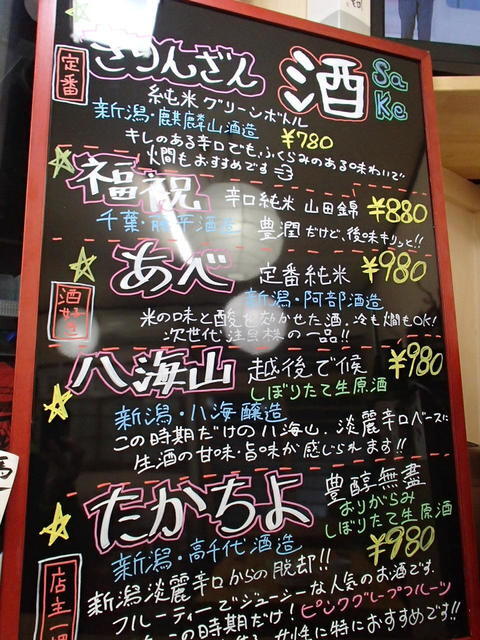 定番
きりんざん
酒
Sa
Ke
純米 グリーンボトル
新潟・麒麟山酒造 ¥780
キレのある辛口でも、ふくらみのある味わいで
燗もおすすめです
福祝
辛口純米 山田錦 ¥880
千葉・藤平酒造
豊潤だけど、後味キリッと!!
あべ
定番純米 ¥980
新潟・阿部酒造
酒好き
米の味と酸を効かせた酒。冷も燗もOK!
次世代注目株の一品!!
八海山
越後で候 ¥980
しぼりたて生原酒
新潟・八海醸造
この時期だけの八海山。淡麗辛口ベースに
生酒の甘味・旨味が感じられます!!
たかちよ
豊醇無盡
おりがらみ
しぼりたて生原酒
新潟・高千代酒造 ¥980
店主一押
新潟淡麗辛口からの脱却!!
フルーティーでジューシーな人気のお酒です。
この時期だけ!ピンクグレープフルーツ
女性に特におすすめです!!